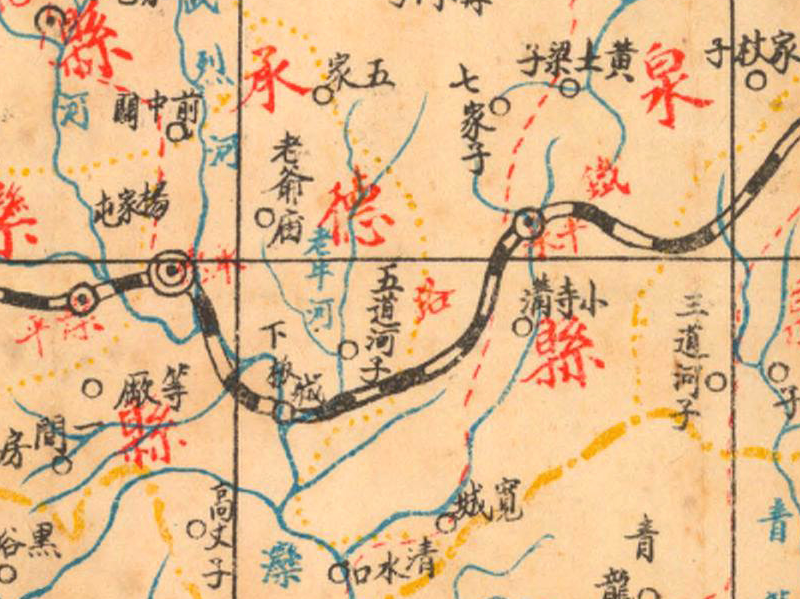 縣
河
烈
河
前中關
楊家屯
承
德
縣
五家
老爺庙
老牛河
五道河子
下板城
七家子
黃土梁子
泉
家杖子
鐵
路
平泉
小寺溝
縣
三道河子
子
承
平
縣
等廠
一間房
高丈子
灤
寬城
清水口
青龍
青
黑
峪